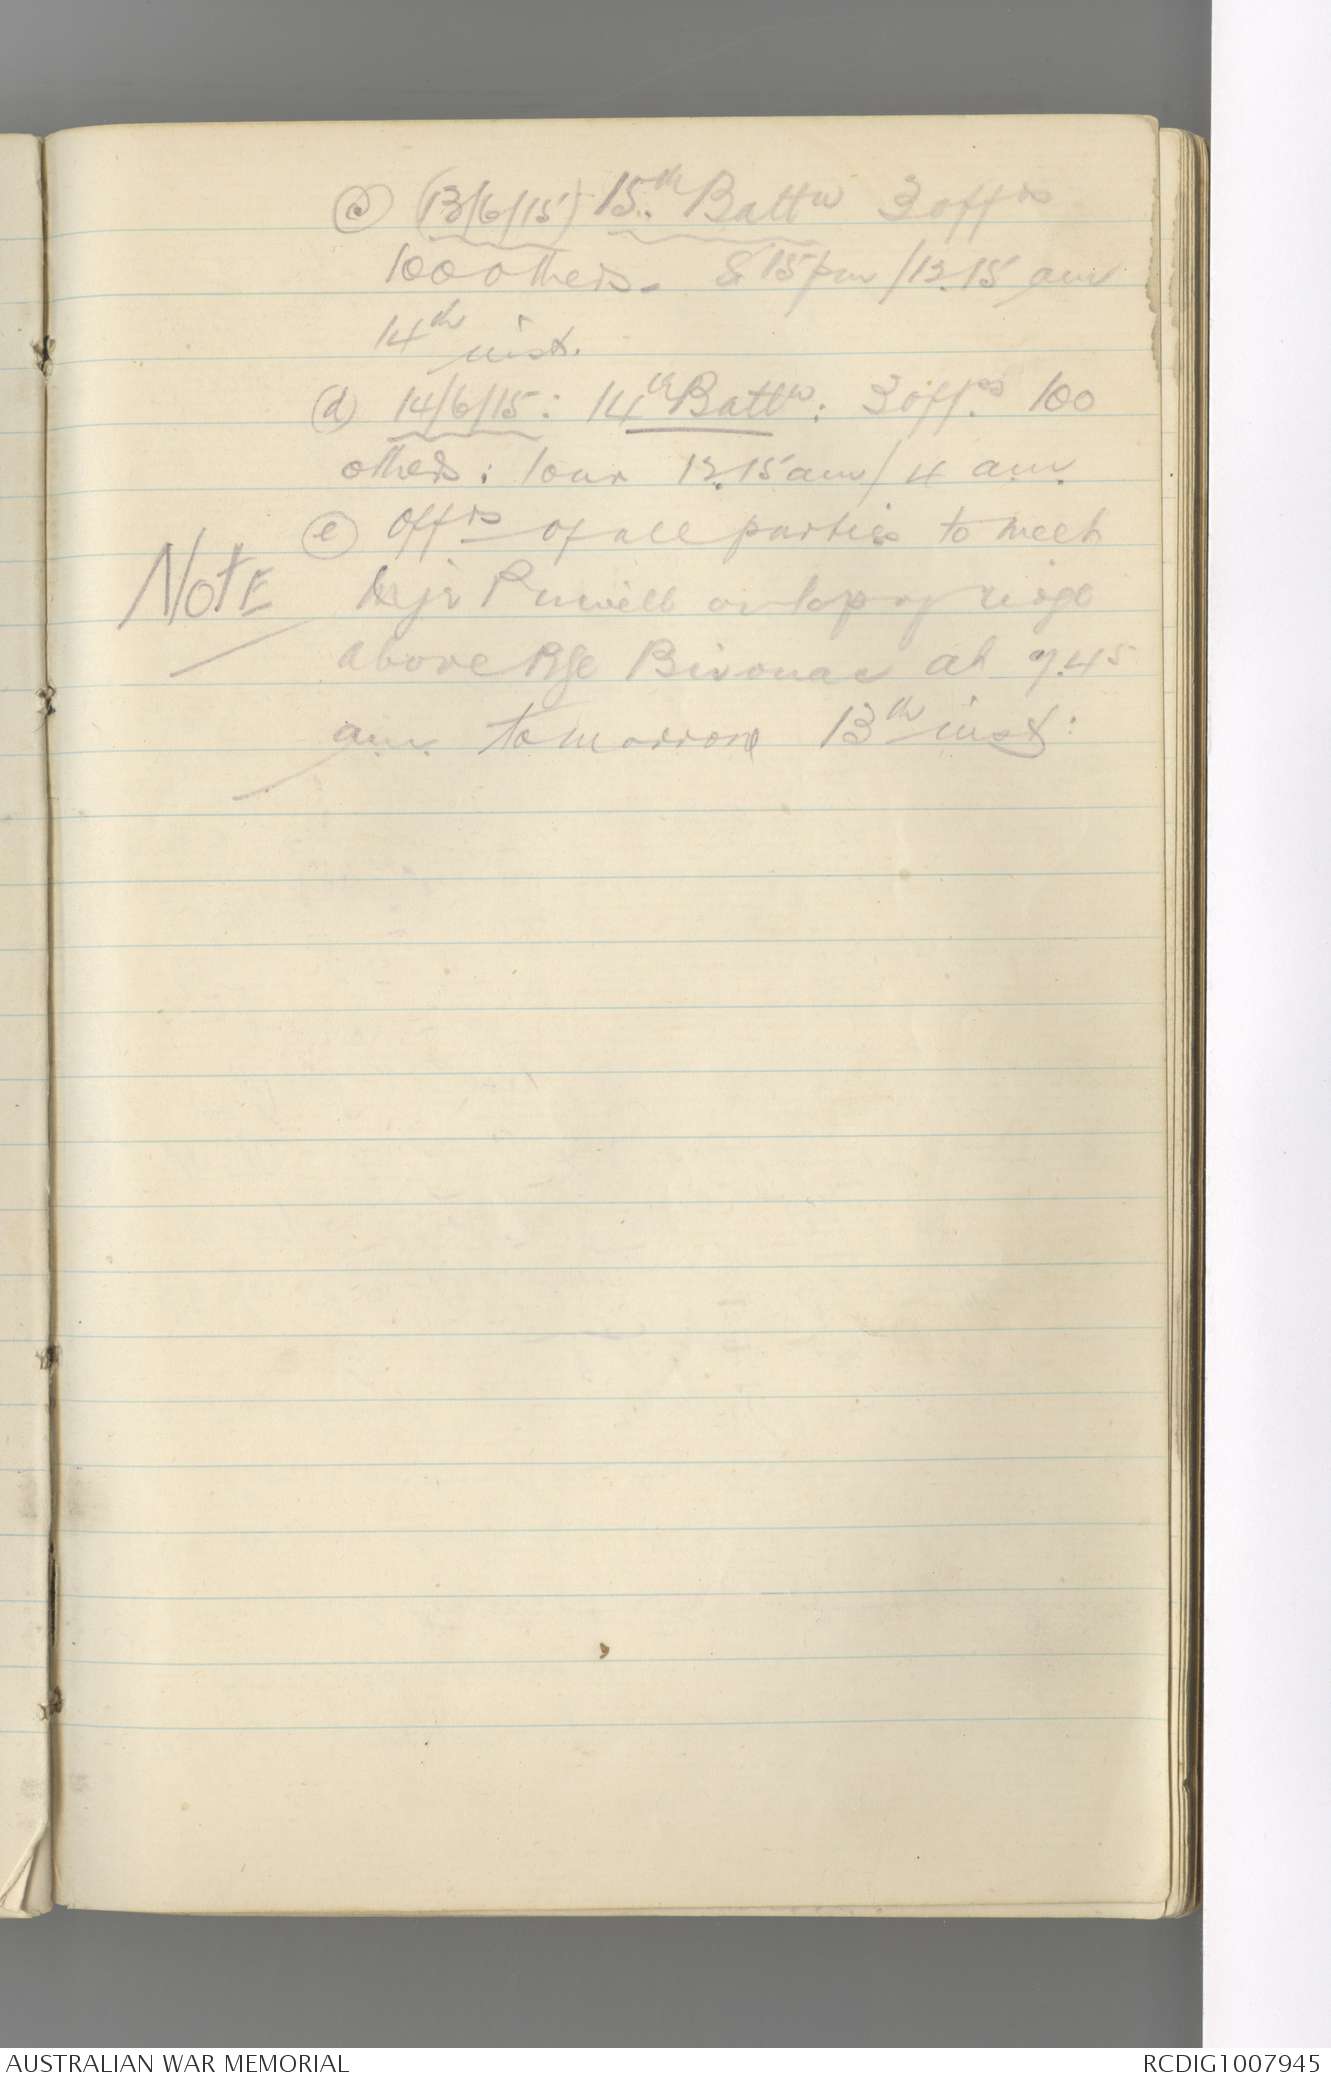 (c) (13/6/15) 15th Battn 3 offrs
100 others. 8.15 pm / 12.15 am
14th inst.
(d) 14/6/15: 14th Battn: 3 offrs 100
others: 12.15 am / 4 am.
(e) Offrs of all parties to meet
NOTE Major on top of ridge
above Bde Bivouac at 7.45
am. tomorrow 13th inst:
AUSTRALIAN WAR MEMORIAL
RCDIG1007945